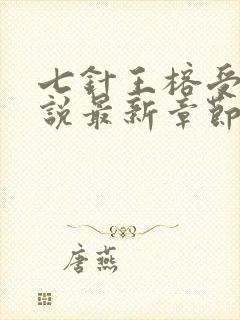 七針王榕受
說最新章節
唐燕